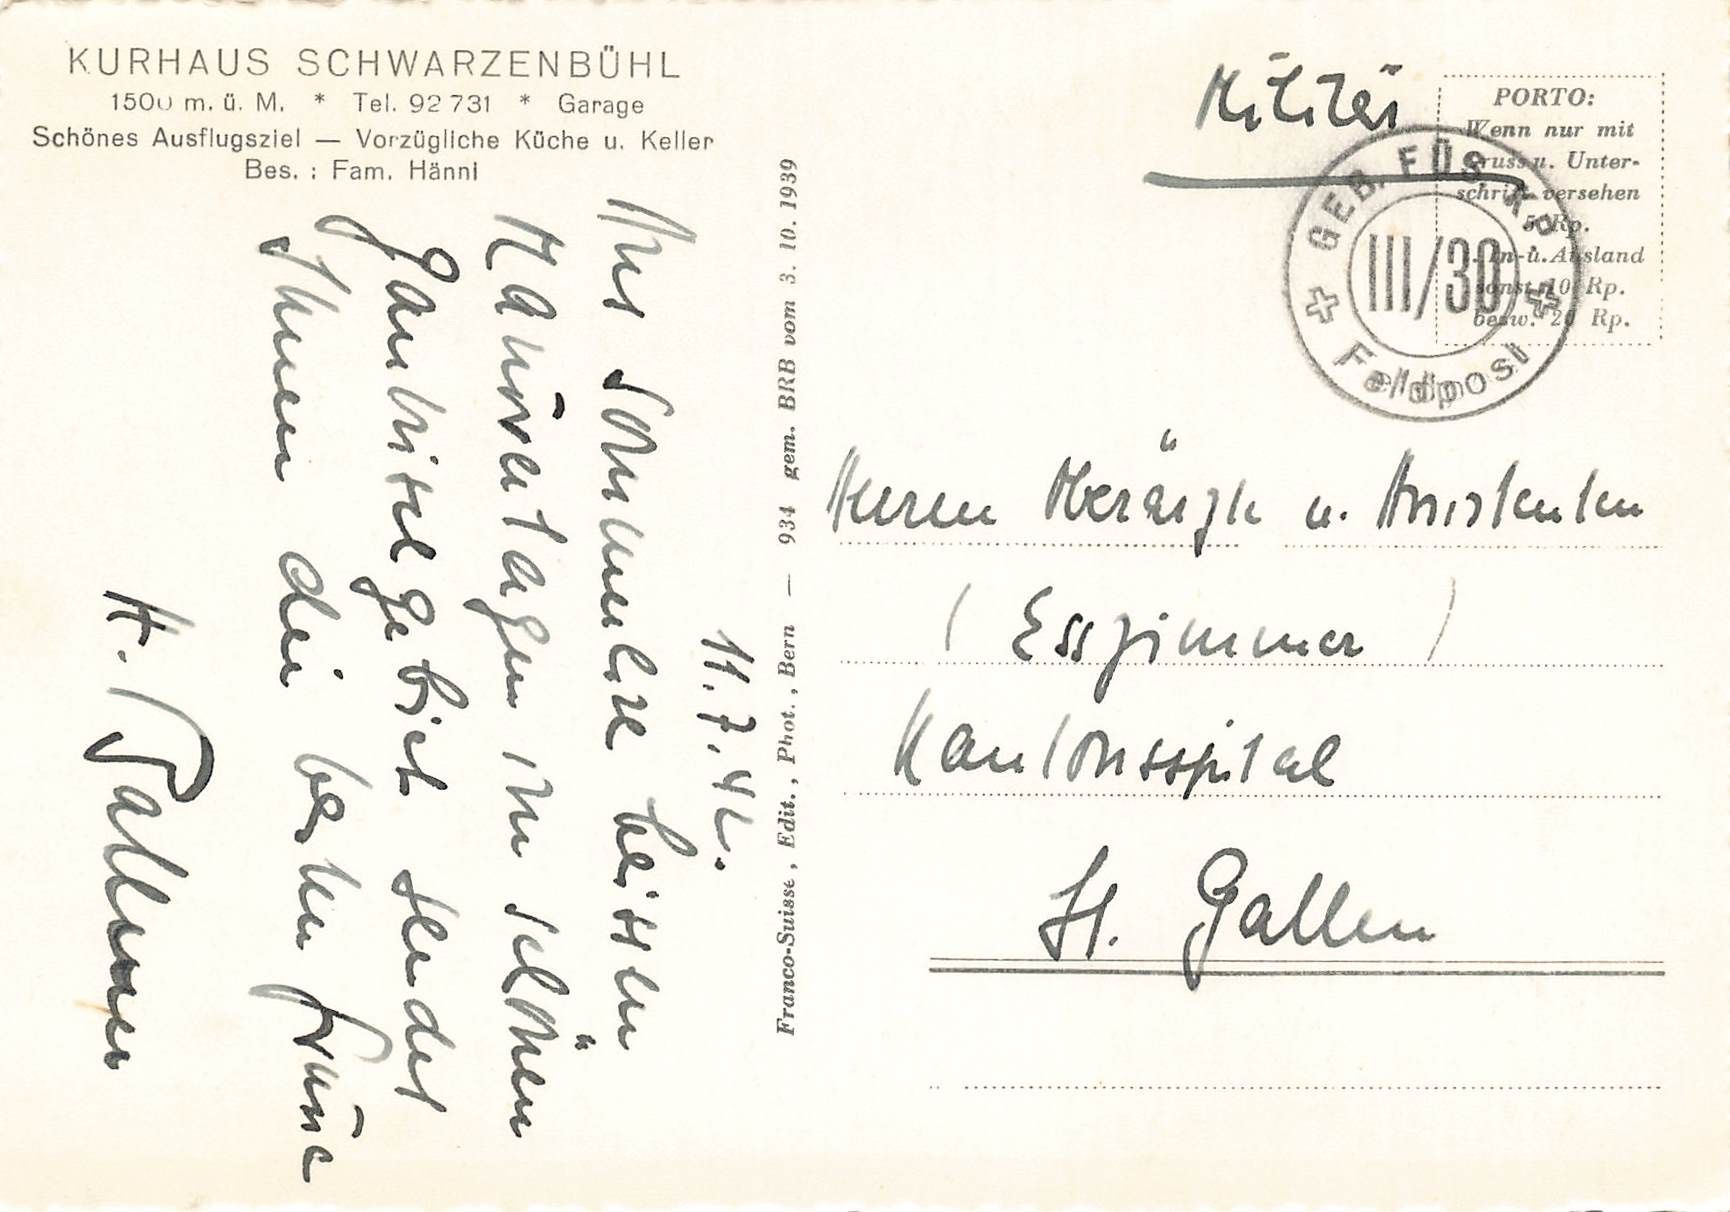 KURHAUS SCHWARZENBÜHL
1500 m. ü. M. * Tel. 92 731 * Garage
Schönes Ausflugsziel — Vorzügliche Küche u. Keller
Bes. : Fam. Hänni
11. 7. 42.
Aus sommerlich heissen
Manövertagen im schönen
Gantrischgebiet sendet
Ihnen die besten Grüsse
H.
Franco-Suisse, Edit., Phot., Bern — 934 gem. BRB vom 3. 10. 1939
Militär
PORTO:
Wenn nur mit
Gruss u. Unter-
schrift versehen
5 Rp.
In- u. Ausland
sonst 10 Rp.
bezw. 20 Rp.
GEB. FÜS. KP.
III/30
Feldpost
Herren Oberärzte u. Assistenten
(Esszimmer)
Kantonsspital
St. Gallen